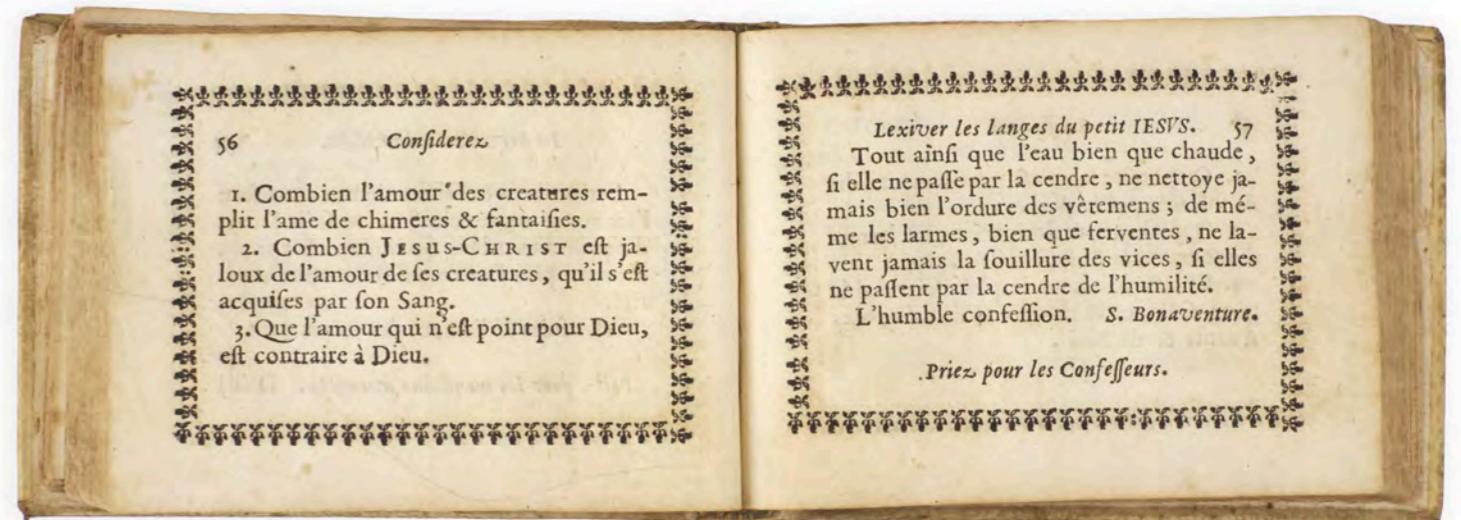 56 Conſiderez
1. Combien l'amour des creatures rem-
plit l'ame de chimeres & fantaiſies.
2. Combien JESUS-CHRIST eſt ja-
loux de l'amour de ſes creatures, qu'il s'eſt
acquiſes par ſon Sang.
3. Que l'amour qui n'eſt point pour Dieu,
eſt contraire à Dieu.
Lexiver les langes du petit IESVS. 57
Tout ainſi que l'eau bien que chaude,
ſi elle ne paſſe par la cendre, ne nettoye ja-
mais bien l'ordure des vêtemens; de mé-
me les larmes, bien que ferventes, ne la-
vent jamais la ſouillure des vices, ſi elles
ne paſſent par la cendre de l'humilité.
L'humble confeſſion. S. Bonaventure.
Priez pour les Confeſſeurs.